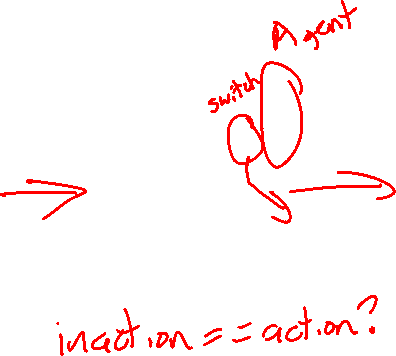 Agent
switch
inaction == action?